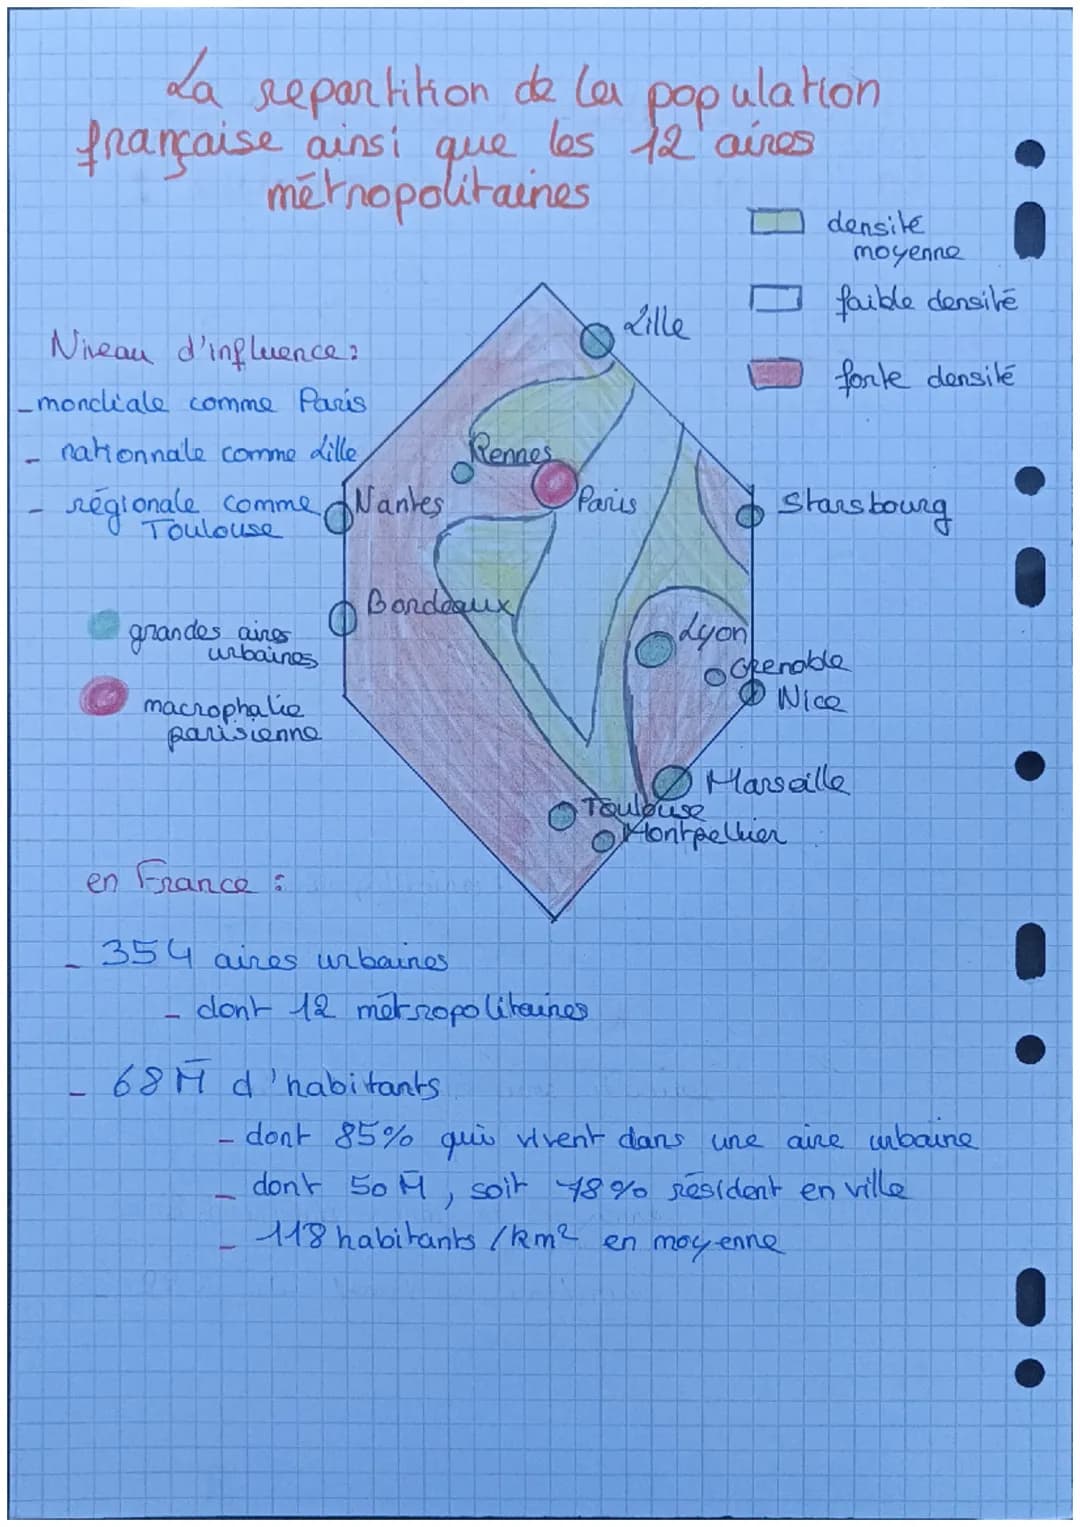 La repartition de la population
française ainsi que les 12 aires
métropolitaines
densité
moyenne
faible densité
forte densité
Niveau d'influence :
- mondiale comme Paris
- nationnale comme Lille
- régionale comme
Toulouse
grandes aires
urbaines
macrophalie
parisienne
Lille
Rennes
Paris
Nantes
Starsbourg
Bordeaux
Lyon
Grenoble
Nice
Marseille
Toulouse
Montpellier
en France :
- 354 aires urbaines
- dont 12 métropolitaines
- 68 M d'habitants
- dont 85% qui vivent dans une aire urbaine
- dont 50 M, soit 78% résident en ville
- 118 habitants /km² en moyenne